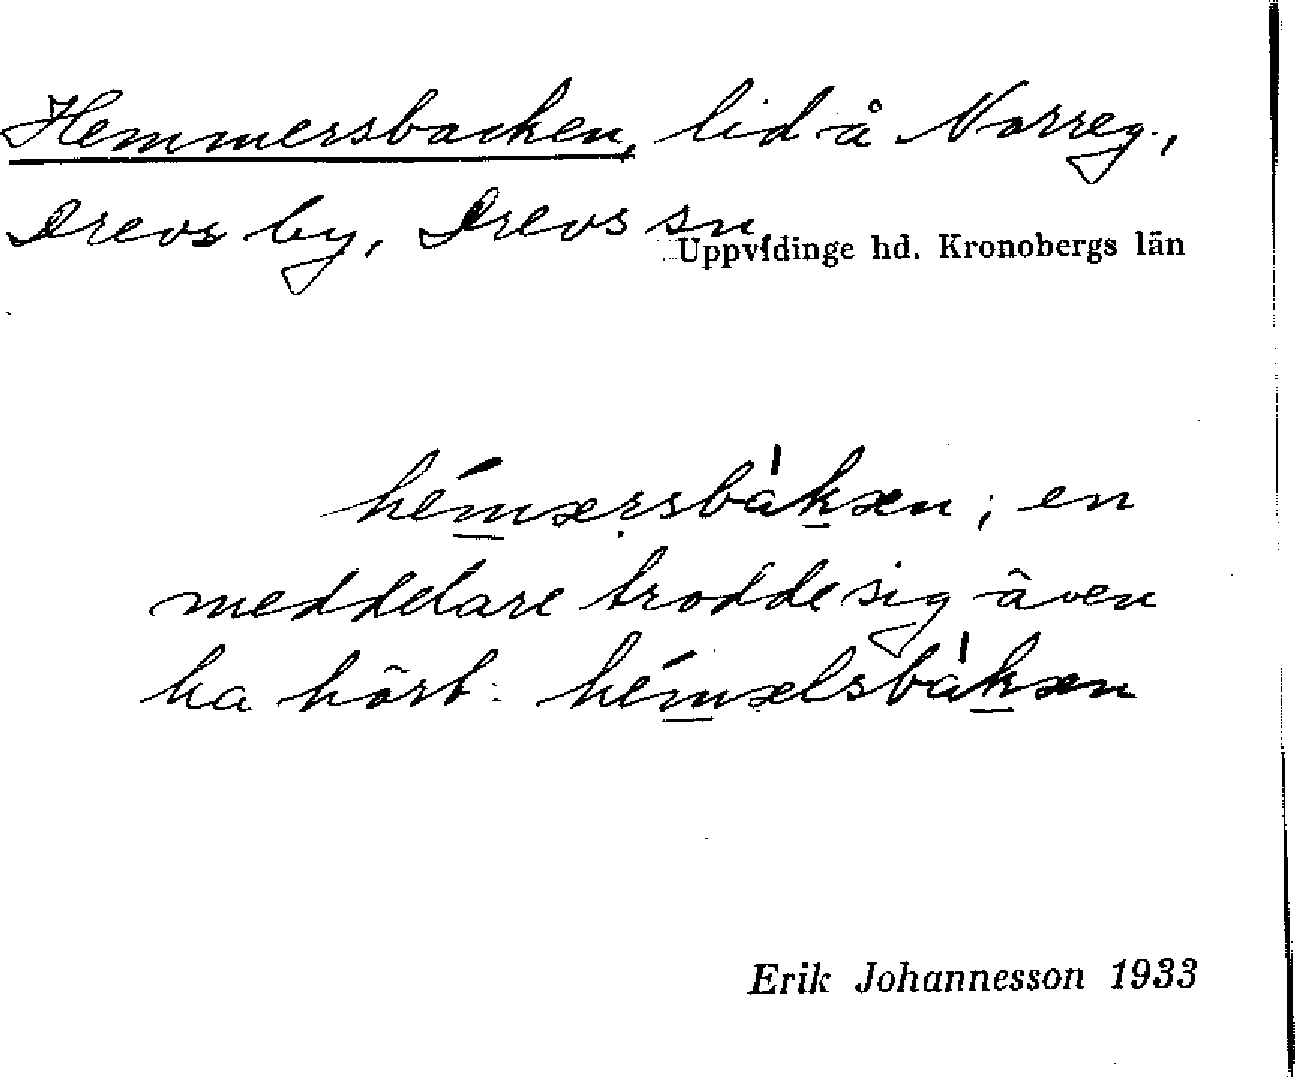 Hemmersbacken, lid å Norreg.,
Drevs by, Drevs sn
Uppvidinge hd. Kronobergs län
hémærsbàkæn; en
meddelare trodde sig även
ha hört: hémælsbàkæn
Erik Johannesson 1933